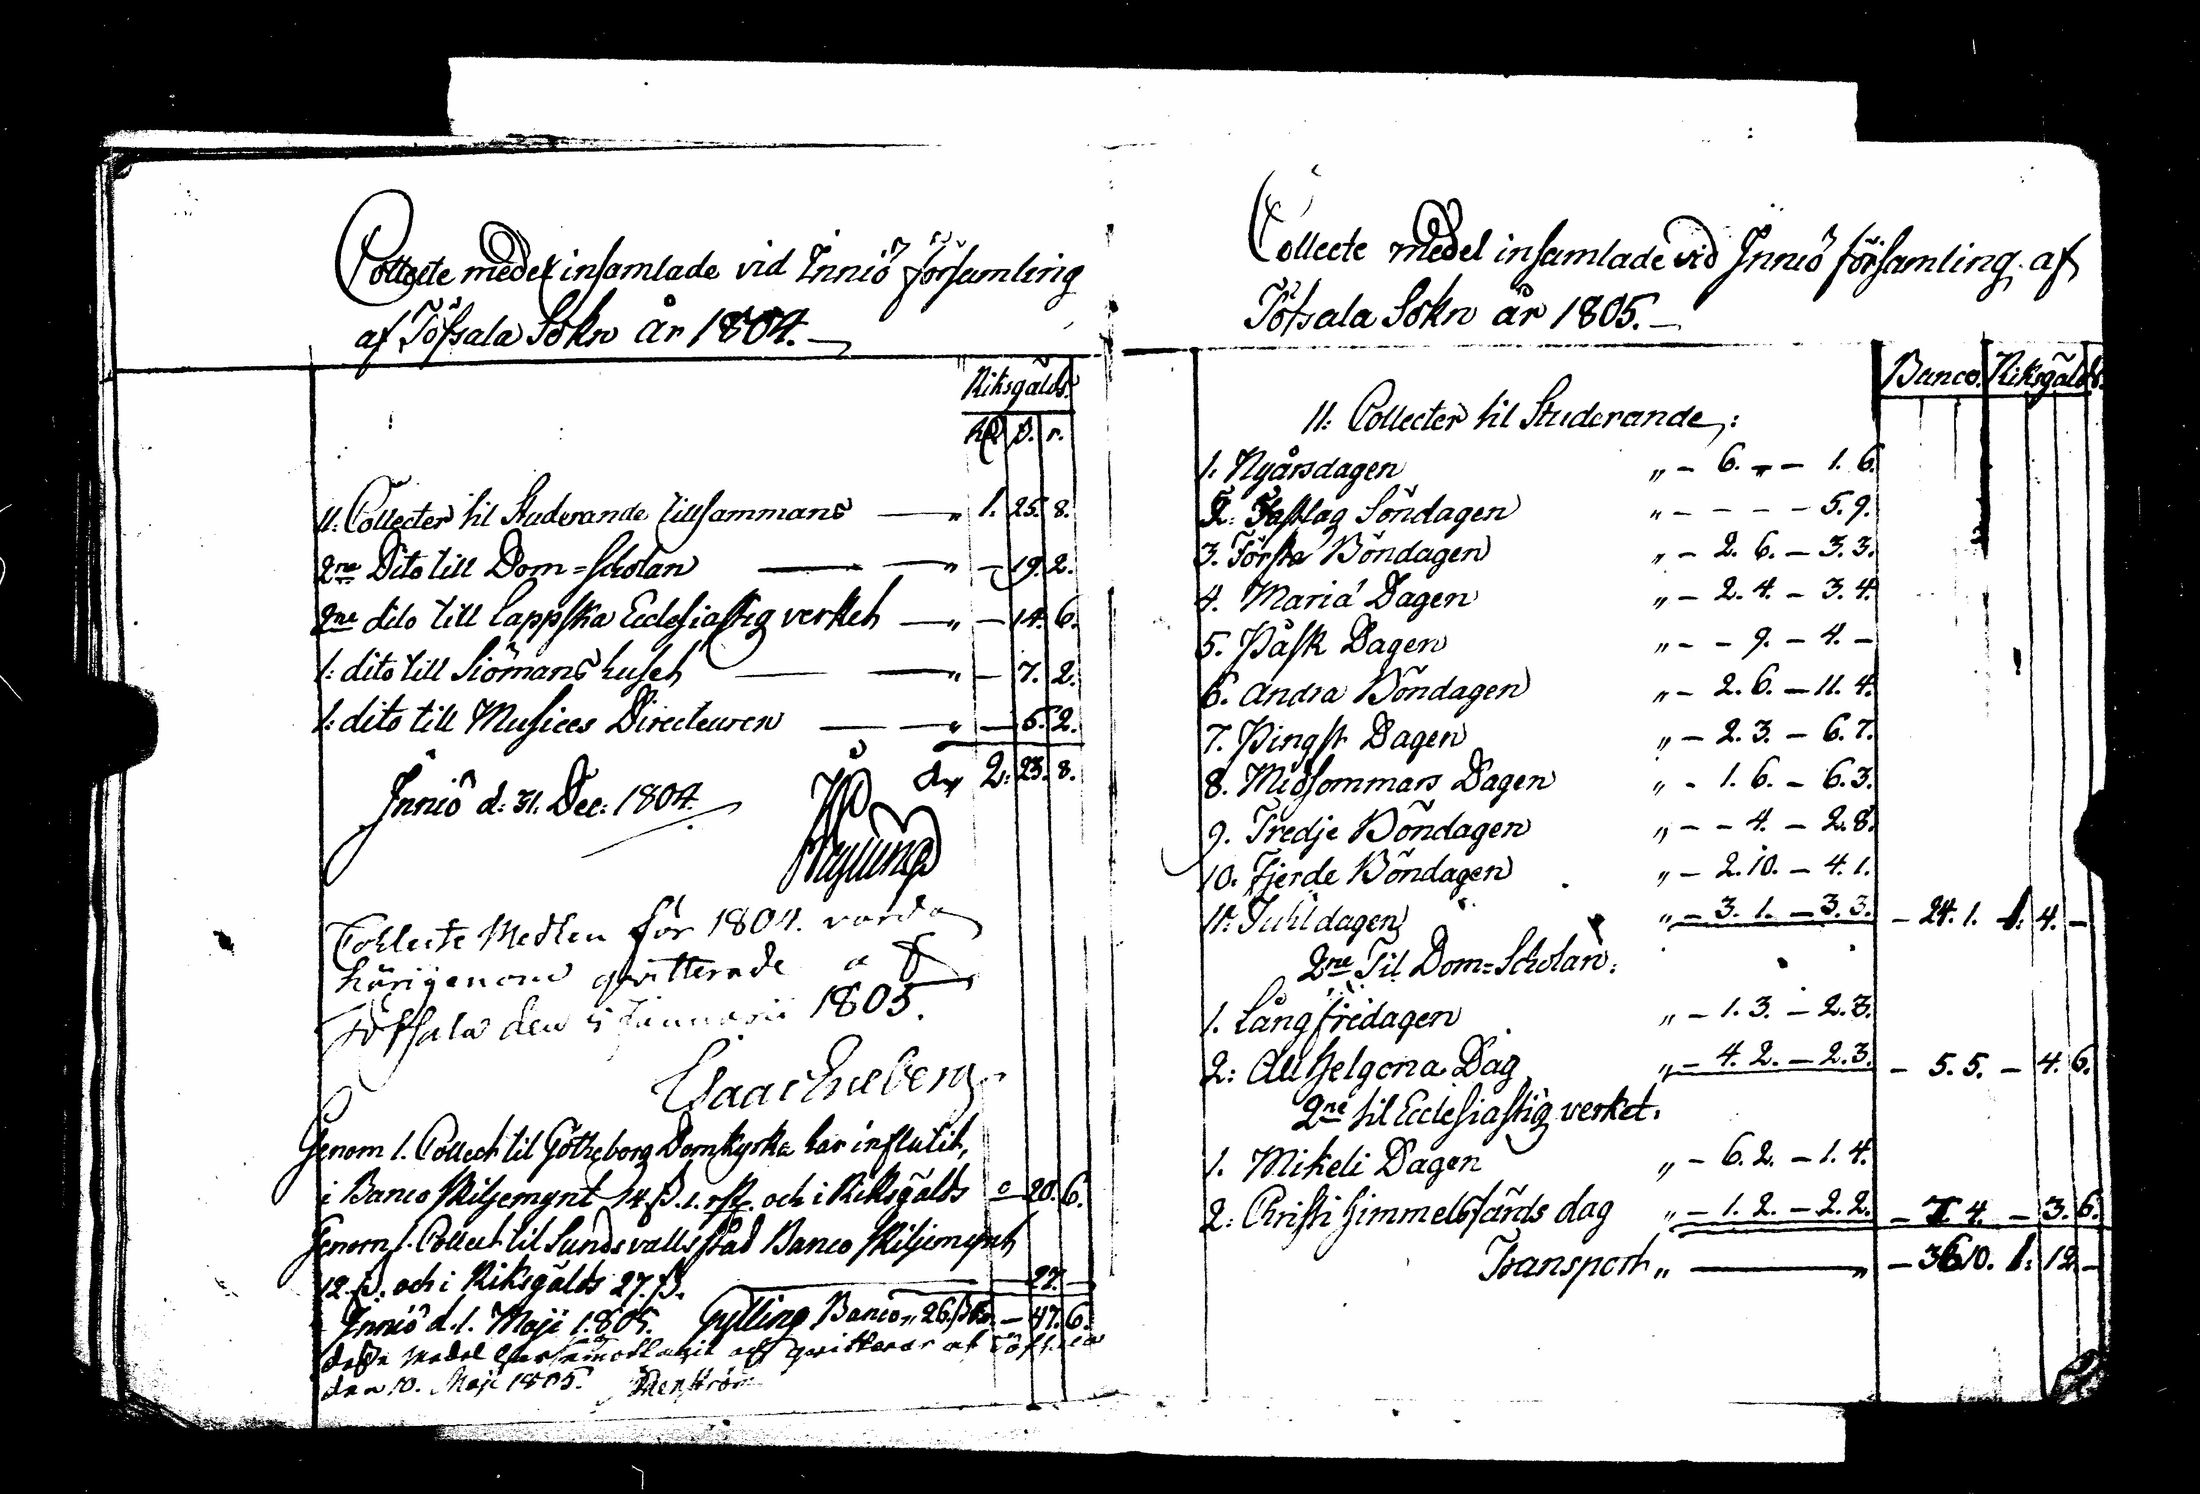 Collecte medel insamlade vid Inniö församling
af Töfsala Sokn år 1804.
Riksgälds
Rd. ß. r.
11: Collecter til Studerande tillsammans — „ 1. 25. 8.
2ne Dito till Dom=Scholan — — „ — 19. 2.
2ne dito till Lappska Ecclesiastiq verket — „ — 14. 6.
1: dito till Siömans huset — — „ — 7. 2.
1: dito till Musices Directeuren — — „ — 5. 2.
2: 23. 8.
Inniö d: 31. Dec: 1804.
Collecte Medlen för 1804. varda
härigenom qvitterade af
Töfsala den 5 Januarii 1805.
Genom 1. Collect til Götheborg Domkyrka har influtit,
i Banco skiljemynt 14. ß. 1. rst. och i Riksgälds — 20. 6.
Genom 1. Collect til Sundsvalls stad Banco skiljemynt
12. ß. och i Riksgälds 27. ß. — 27. —
Inniö d. 1. Maji 1805. Gylling Banco „ 26. ß — 47. 6.
dessa medel qvitteras af Töfsala
den 10. Maji 1805.
Collecte medel insamlade vid Inniö församling af
Töfsala Sokn år 1805. —
Banco. Riksgälds.
11: Collecter til Studerande:
1. Nyårsdagen „ — 6. „ — 1. 6.
2. Fastlag Söndagen „ — — — — 5. 9.
3. Första Böndagen „ — 2. 6. — 3. 3.
4. Mariä Dagen „ — 2. 4. — 3. 4.
5. Påsk Dagen „ — — 9. — 4. —
6. Andra Böndagen „ — 2. 6. — 11. 4.
7. Pingst Dagen „ — 2. 3. — 6. 7.
8. Midsommars Dagen „ — 1. 6. — 6. 3.
9. Tredje Böndagen „ — — 4. — 2. 8.
10. Fjerde Böndagen „ — 2. 10. — 4. 1.
11. Juhldagen „ — 3. 1. — 3. 3. — 24. 1. — 1: 4. —
2ne Til Dom=Scholan:
1. Långfredagen „ — 1. 3. — 2. 3.
2: All helgona Dag „ — 4. 2. — 2. 3. — 5. 5. — 4. 6.
2ne til Ecclesiastiq verket.
1. Mikeli Dagen „ — 6. 2. — 1. 4.
2: Christi himmelsfärds dag „ — 1. 2. — 2. 2. — 7. 4. — 3. 6.
Transport „ — „ — 36. 10. 1: 12. —